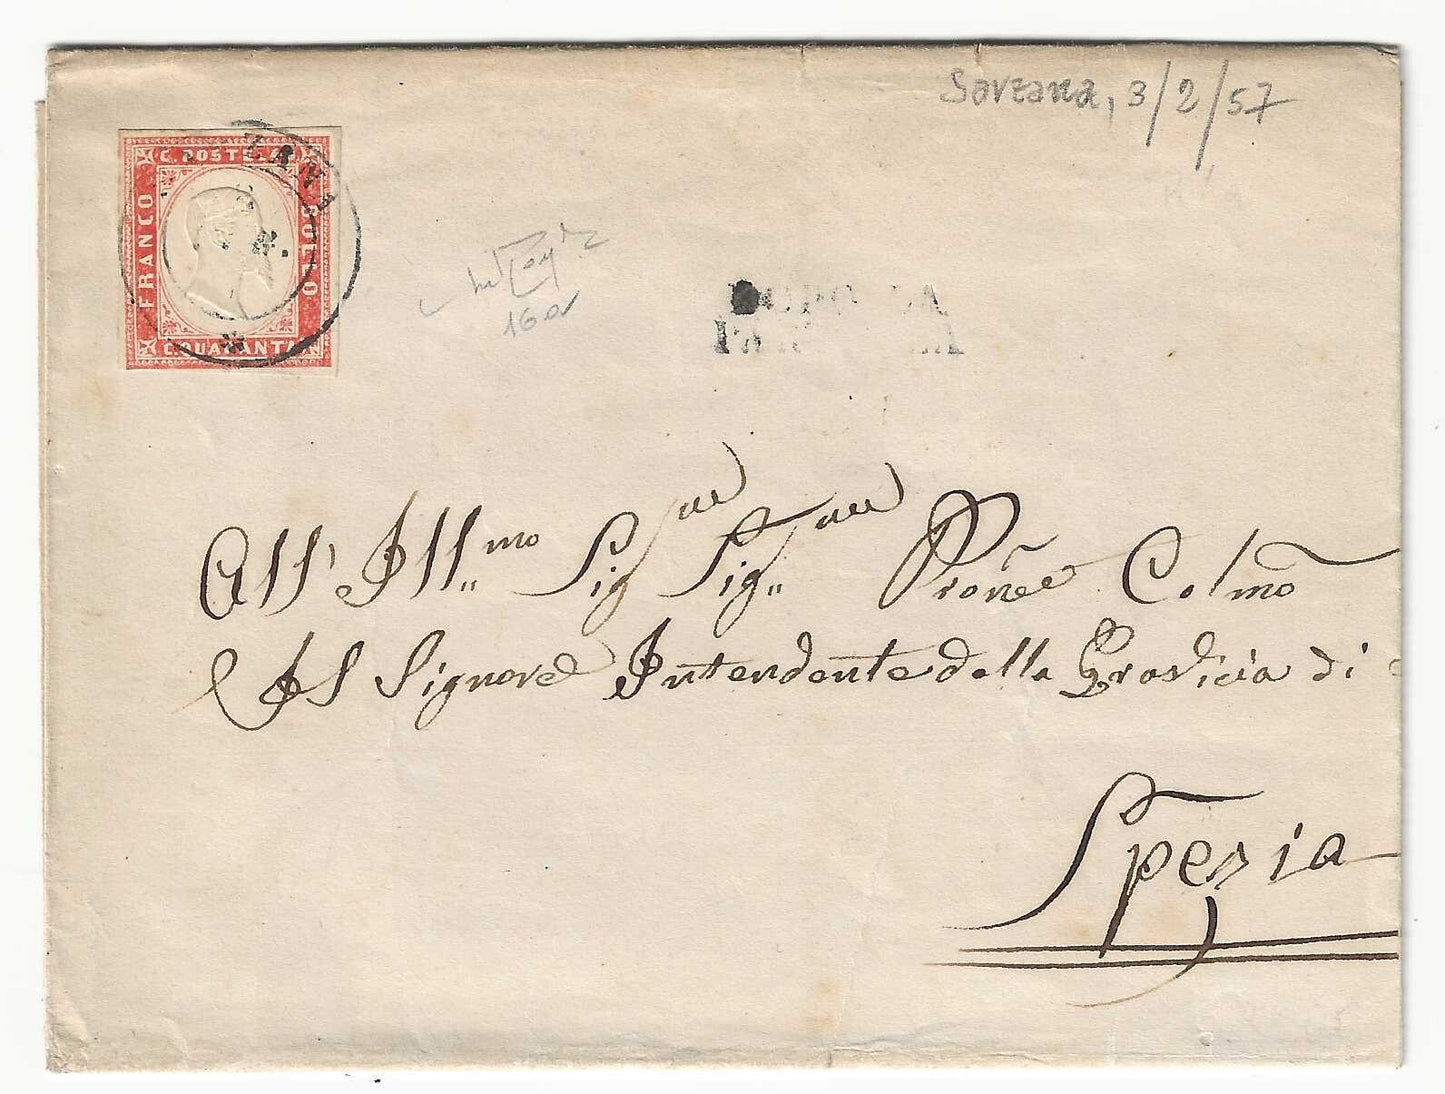 Sarzana, 3/2/57
C. POSTE
FRANCO
BOLLO
C. QUARANTA
ZANA
16a
DOPO LA
PARTENZA
All' Ill.mo Sig Sig.. Prone Colmo
Il Signore Intendente della Provincia di
Spezia